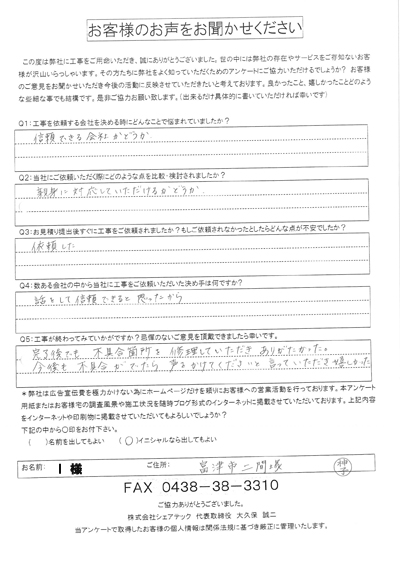 お客様のお声をお聞かせください
この度は弊社に工事をご用命いただき、誠にありがとうございました。世の中には弊社の存在やサービスをご存知ないお客
様が沢山いらっしゃいます。その方たちに弊社をよく知っていただくためのアンケートにご協力いただけるでしょうか? お客様
のご意見をお聞かせいただき今後の活動に反映させていただきたいと考えております。良かったこと、嬉しかったことどのよう
な些細な事でも結構です。是非ご協力お願い致します。(出来るだけ具体的に書いていただければ幸いです)
Q1:工事を依頼する会社を決める時にどんなことで悩まれていましたか?
信頼できる会社かどうか
Q2:当社にご依頼いただく際にどのような点を比較・検討されましたか?
親身に対応していただけるかどうか
Q3:お見積り提出後すぐに工事をご依頼されましたか?もしご依頼されなかったとしたらどんな点が不安でしたか?
依頼した
Q4:数ある会社の中から当社に工事をご依頼いただいた決め手は何ですか?
話をして信頼できると思ったから
Q5:工事が終わってみていかがですか?忌憚のないご意見を頂戴できましたら幸いです。
完了後でも 不具合箇所を修理していただき ありがたかった。
今後も不具合がでたら 声をかけてくださいと言っていただき嬉しかった
*弊社は広告宣伝費を極力かけない為にホームページだけを頼りにお客様への営業活動を行っております。本アンケート
用紙またはお客様宅の調査風景や施工状況を随時ブログ形式のインターネットに掲載させていただいております。上記内容
をインターネットや印刷物に掲載させていただいてもよろしいでしょうか?
下記の中から〇印をお付下さい。
( )名前を出してもよい (〇)イニシャルなら出してもよい
お名前: I 様 ご住所: 富津市二間塚
FAX 0438-38-3310
ご協力ありがとうございました。
株式会社シェアテック 代表取締役 大久保 誠二
当アンケートで取得したお客様の個人情報は関係法規に基づき厳正に管理いたします。